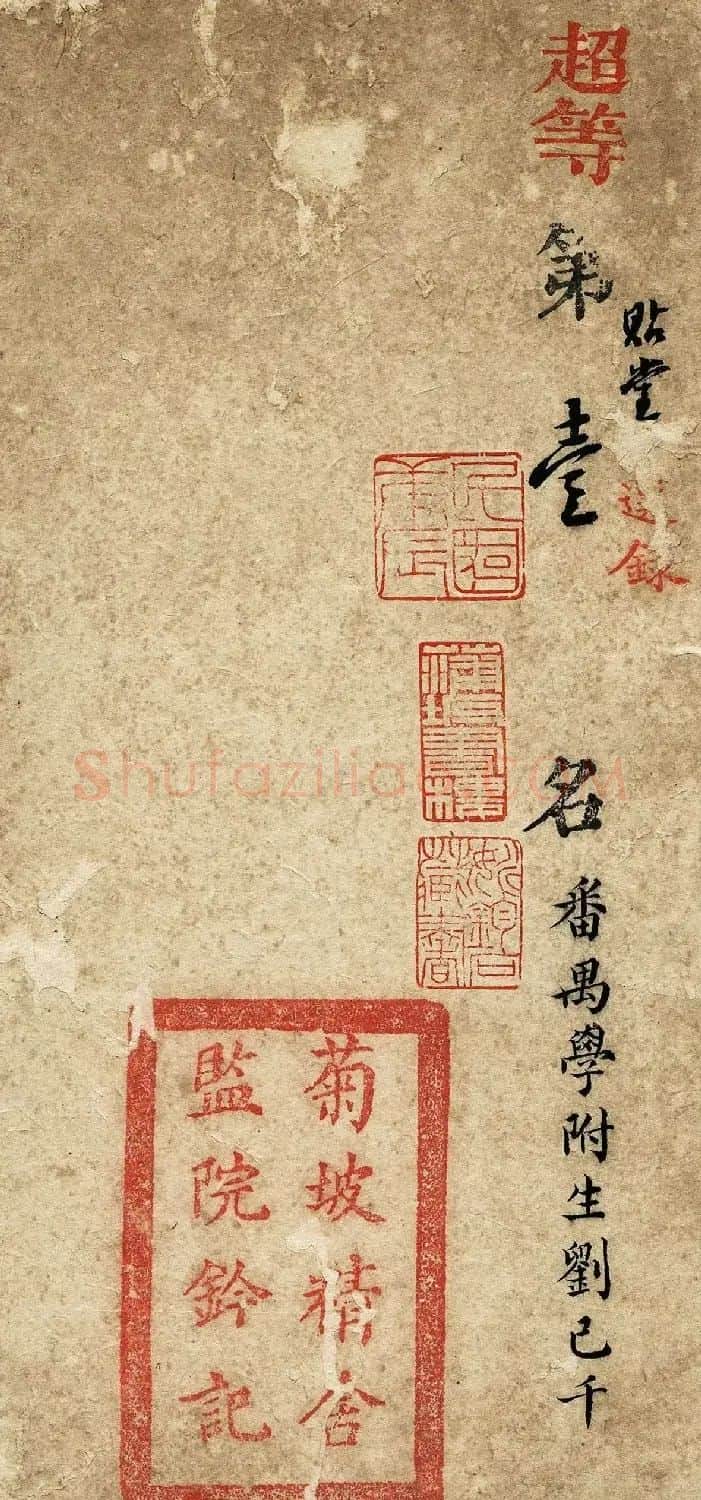 貼堂
選錄
超等第壹名番禺學附生劉已千
菊坡精舍
監院鈐記
Shufaziliao.COM